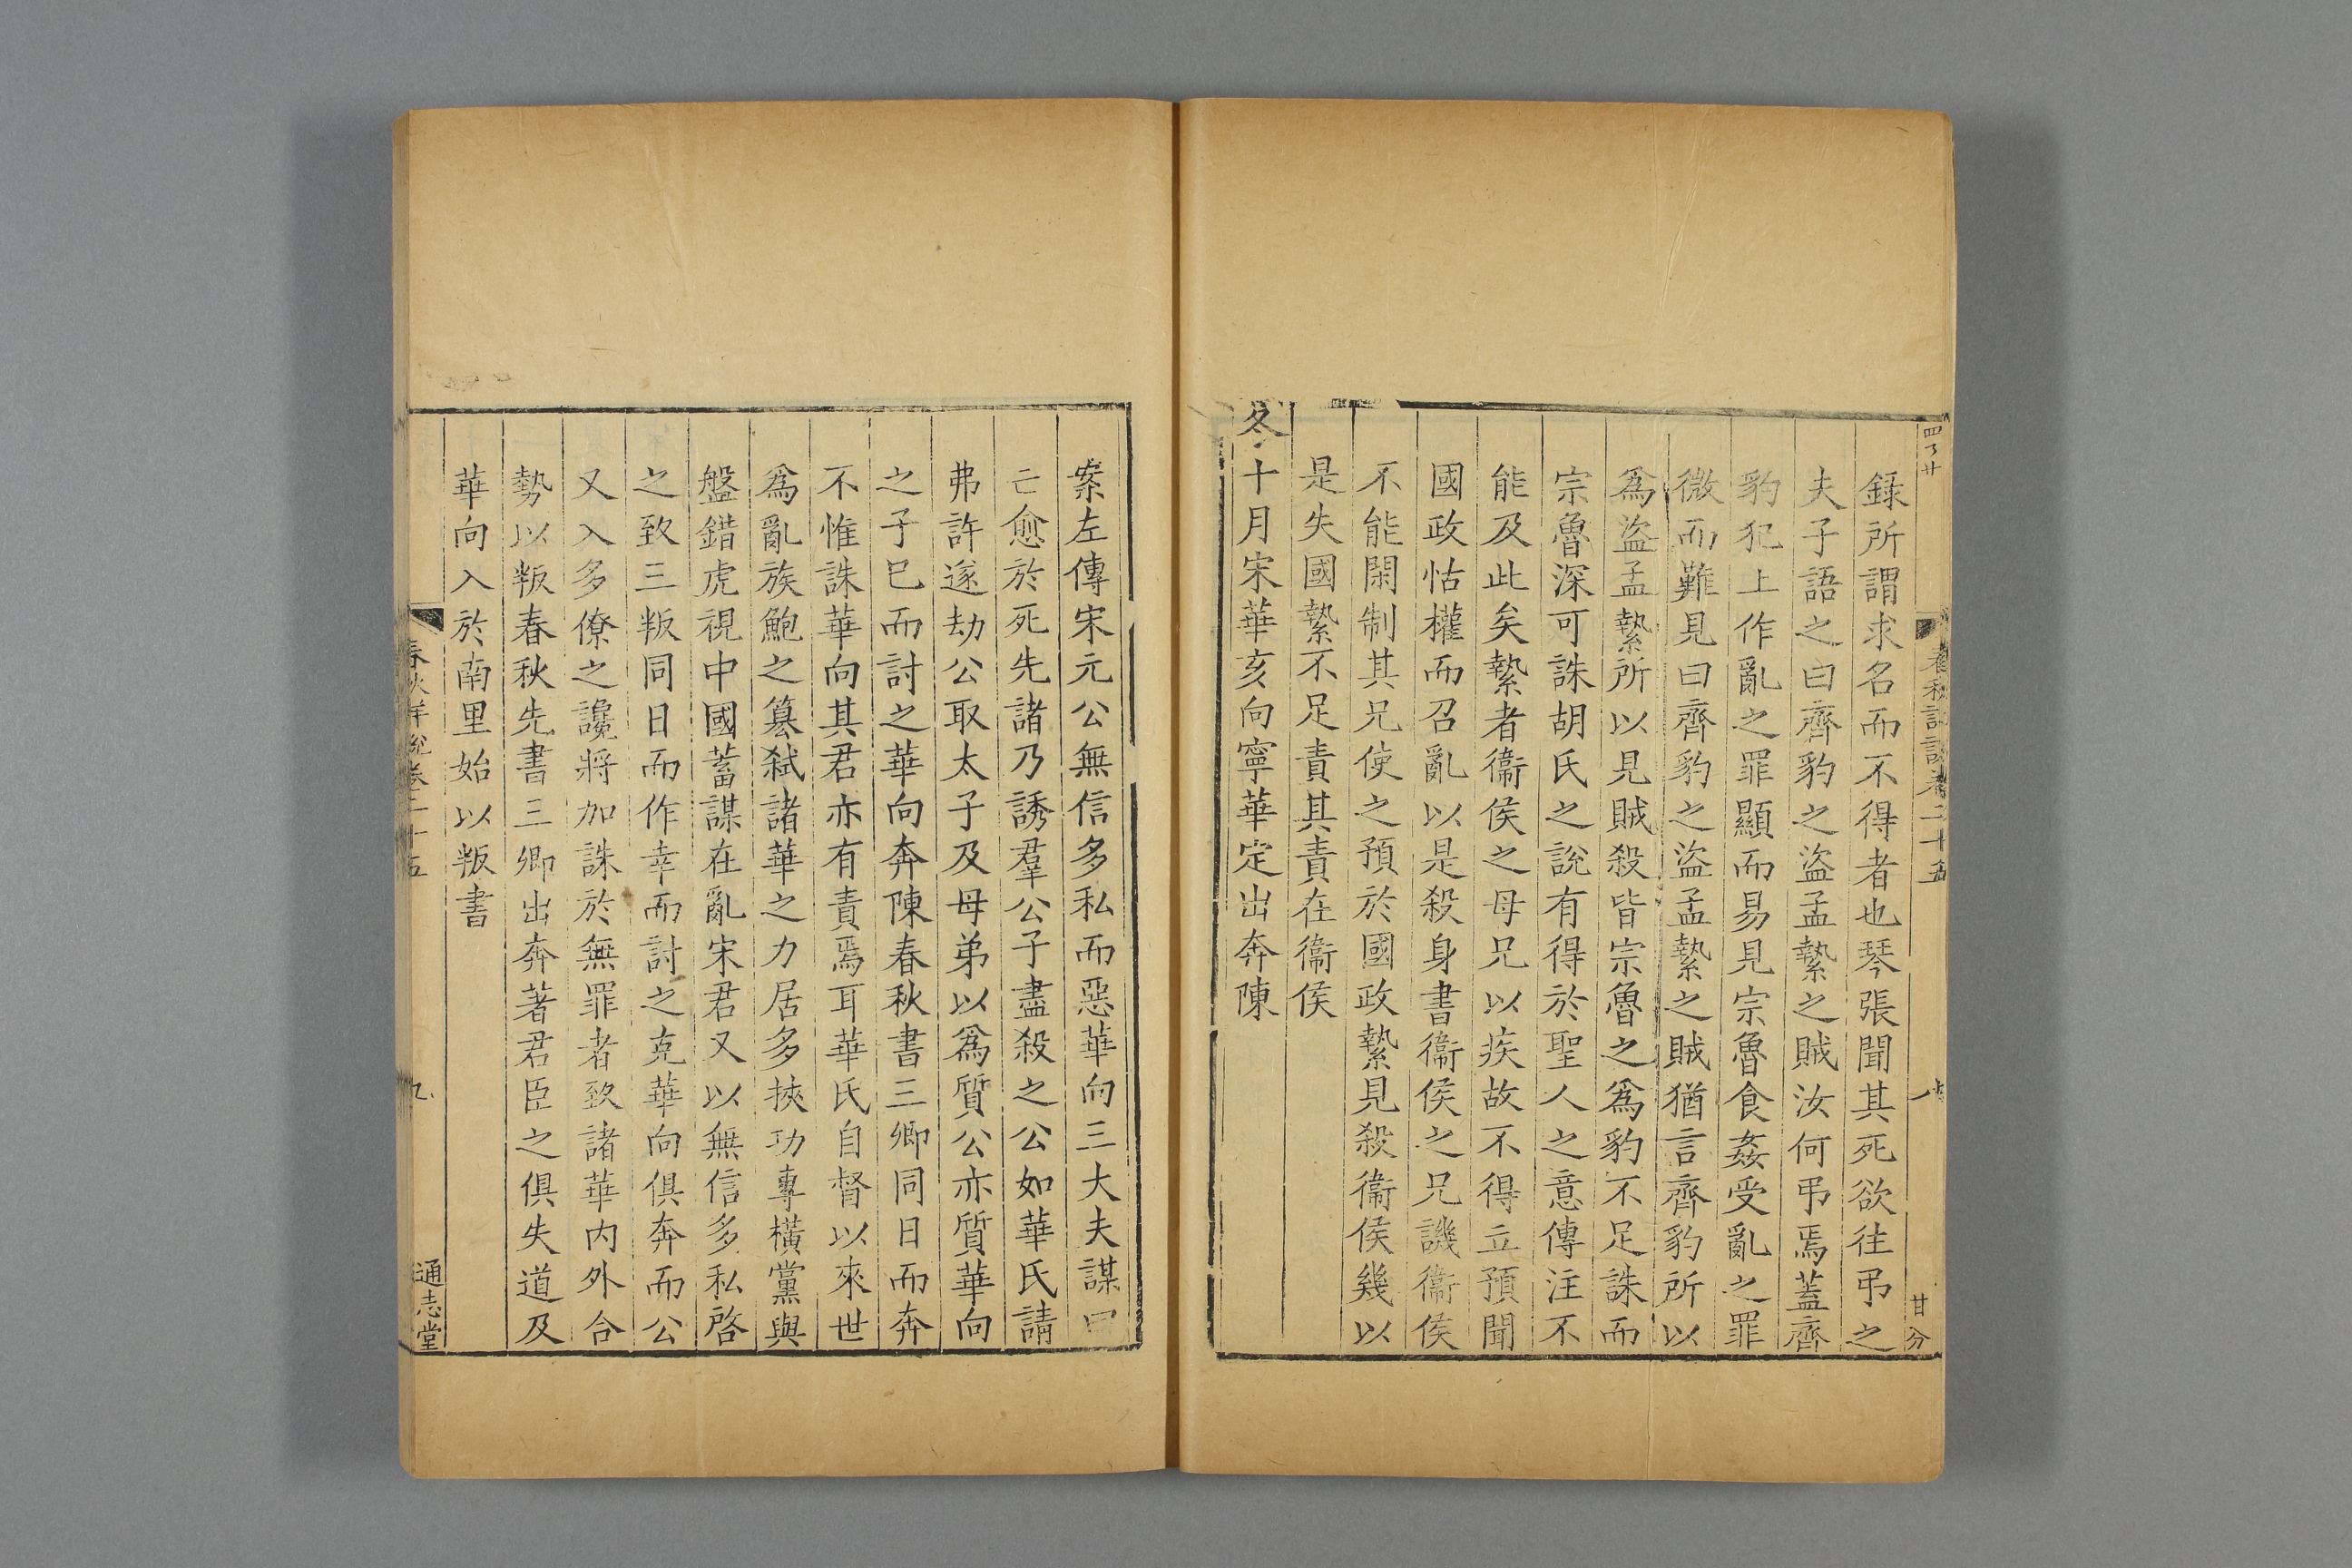 錄所謂求名而不得者也琴張聞其死欲往弔之
夫子語之曰齊豹之盜孟縶之賊汝何弔焉蓋齊
豹犯上作亂之罪顯而易見宗魯食姦受亂之罪
微而難見曰齊豹之盜孟縶之賊猶言齊豹所以
爲盜孟縶所以見賊殺皆宗魯之爲豹不足誅而
宗魯深可誅胡氏之說有得於聖人之意傳注不
能及此矣縶者衞侯之母兄以疾故不得立預聞
國政怙權而召亂以是殺身書衞侯之兄譏衞侯
不能閑制其兄使之預於國政縶見殺衞侯幾以
是失國縶不足責其責在衞侯
冬十月宋華亥向寧華定出奔陳
案左傳宋元公無信多私而惡華向三大夫謀曰
亡愈於死先諸乃誘羣公子盡殺之公如華氏請
弗許遂劫公取太子及母弟以爲質公亦質華向
之子已而討之華向奔陳春秋書三卿同日而奔
不惟誅華向其君亦有責焉耳華氏自督以來世
爲亂族鮑之簒弑諸華之力居多挾功專橫黨與
盤錯虎視中國蓄謀在亂宋君又以無信多私啓
之致三叛同日而作幸而討之克華向俱奔而公
又入多僚之讒將加誅於無罪者致諸華内外合
勢以叛春秋先書三卿出奔著君臣之俱失道及
華向入於南里始以叛書
春秋詳說卷二十五
九
通志堂